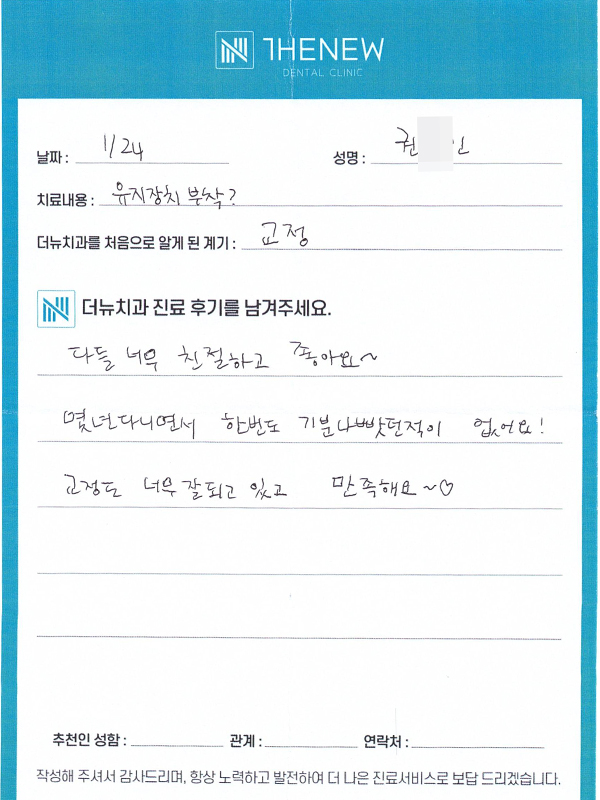 THENEW
DENTAL CLINIC
날짜 : 1/24 성명 : 권 인
치료내용 : 유지장치 부착?
더뉴치과를 처음으로 알게 된 계기 : 교정
더뉴치과 진료 후기를 남겨주세요.
다들 너무 친절하고 좋아요~
몇년다니면서 한번도 기분나빴던적이 없어요!
교정도 너무 잘되고 있고 만족해요~♡
추천인 성함 : 관계 : 연락처 :
작성해 주셔서 감사드리며, 항상 노력하고 발전하여 더 나은 진료서비스로 보답 드리겠습니다.